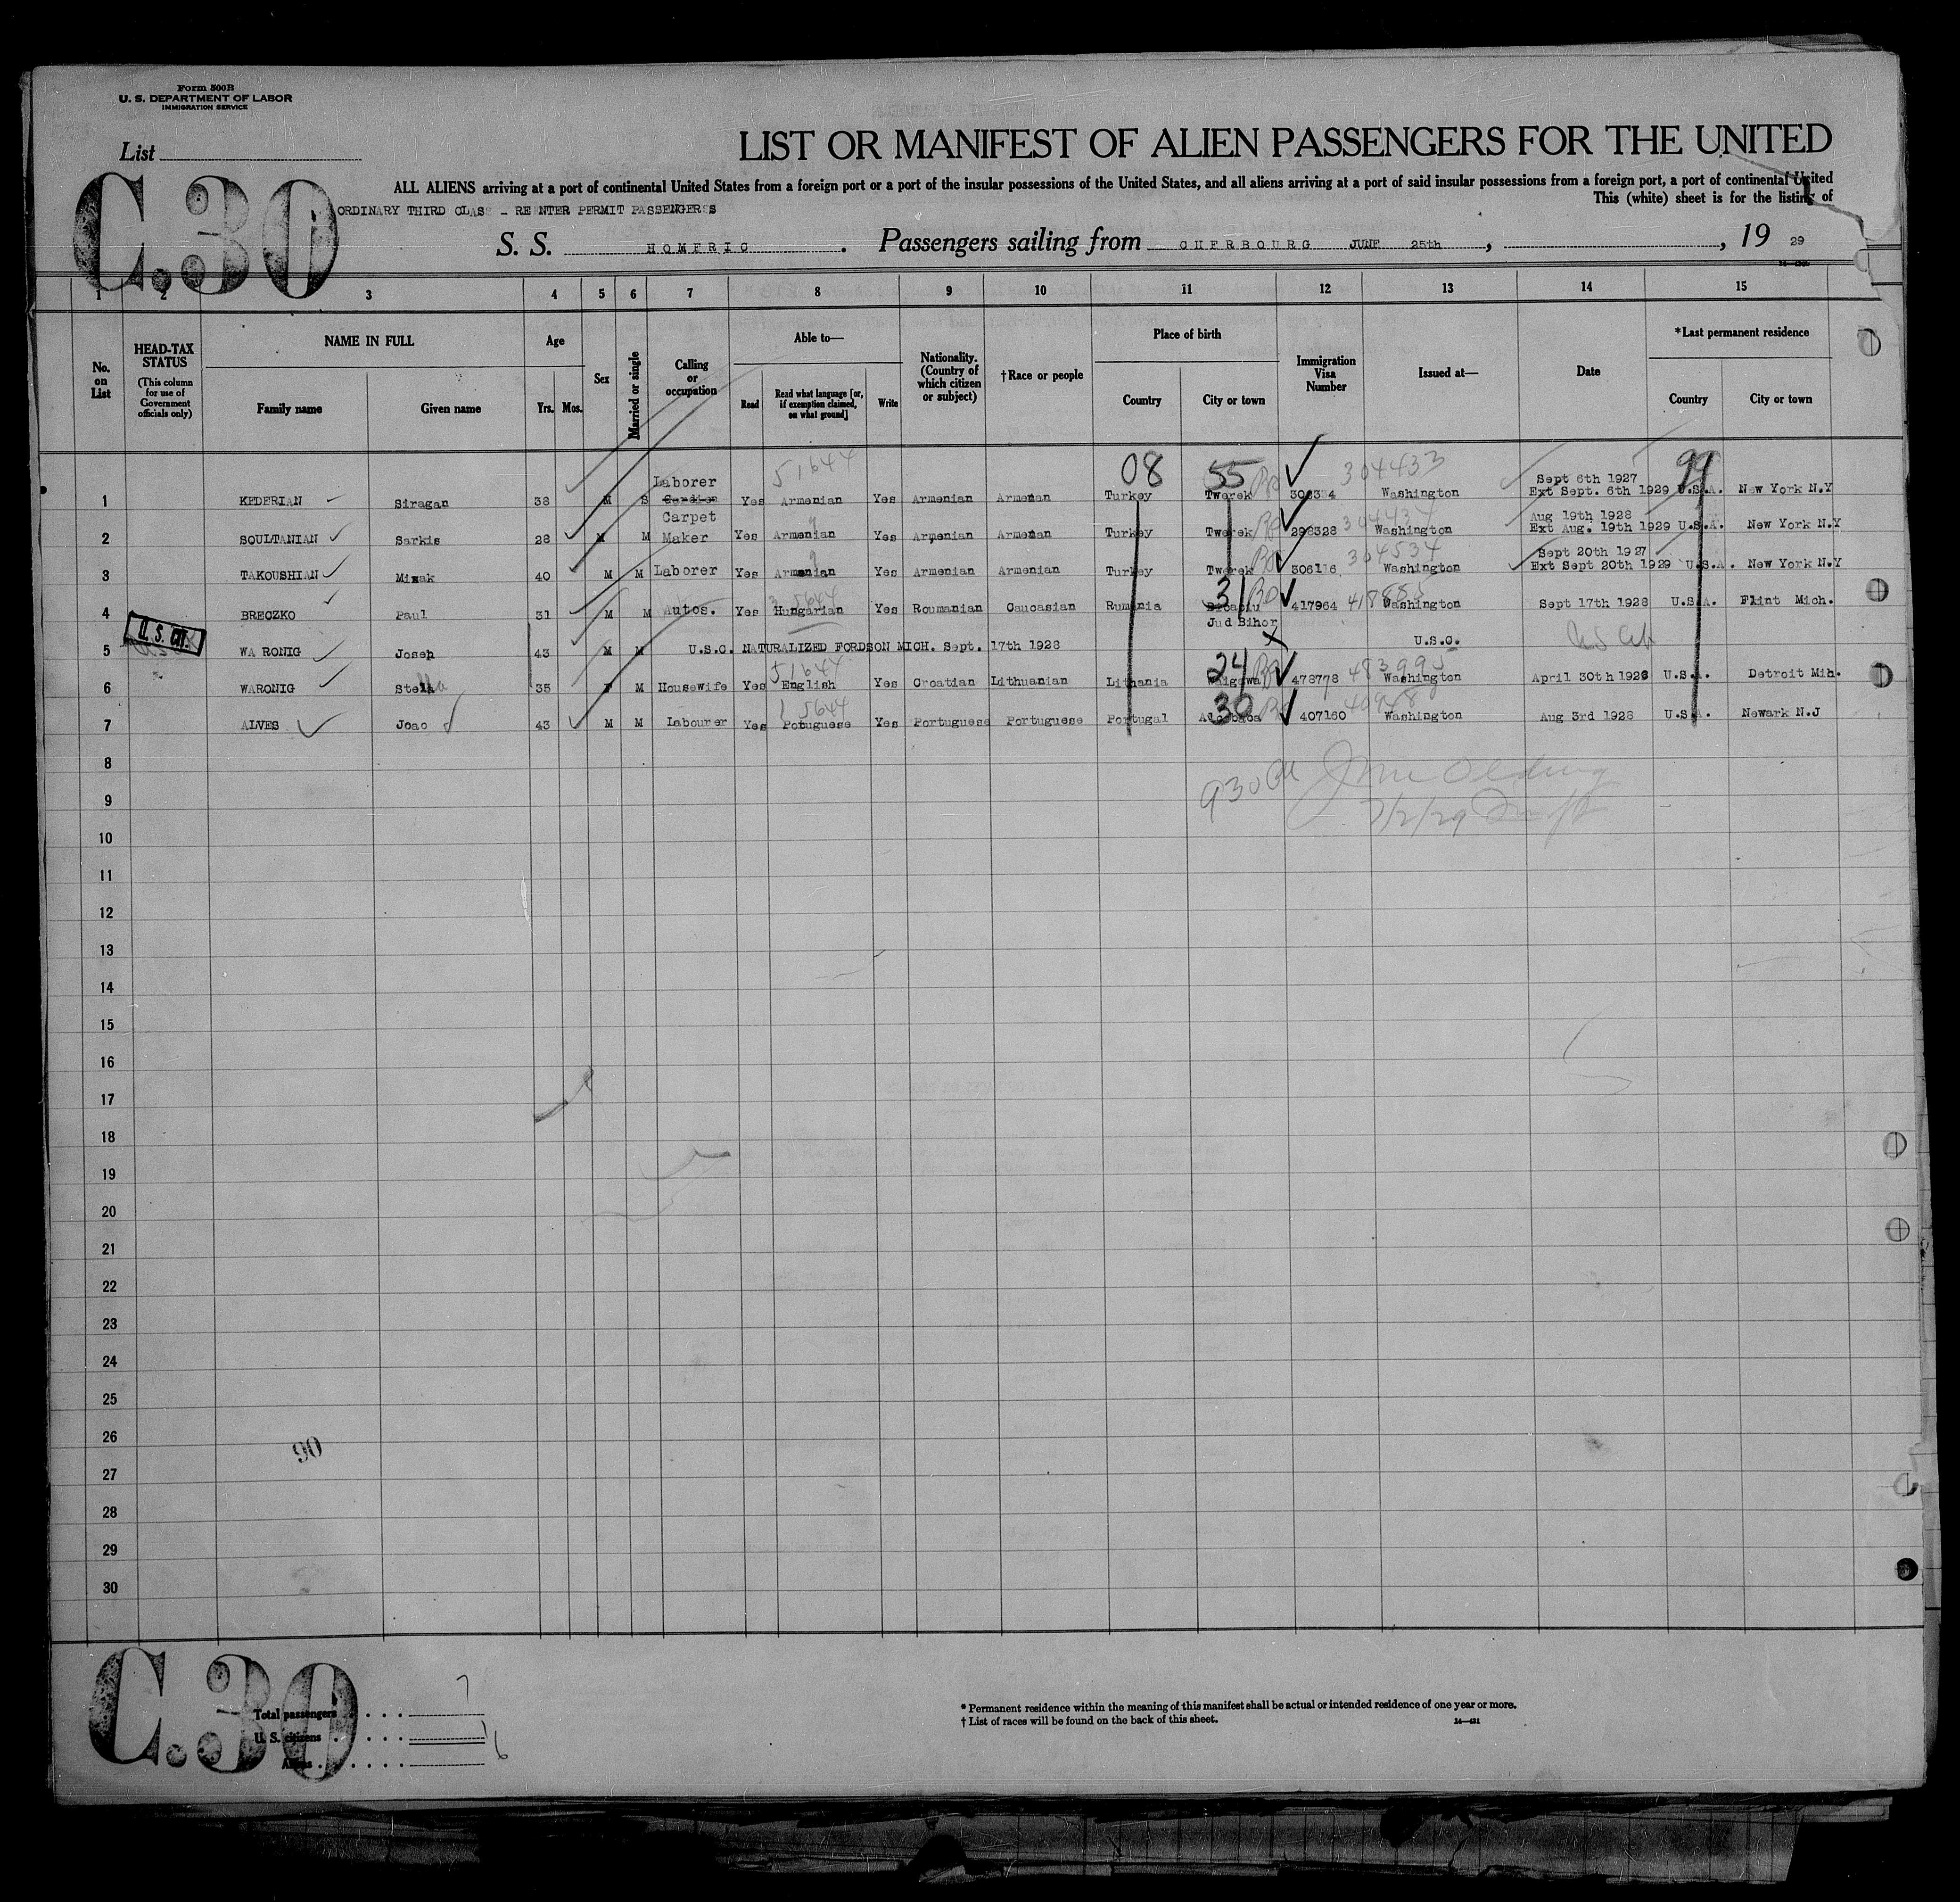 Form 500B
U. S. DEPARTMENT OF LABOR
IMMIGRATION SERVICE
List
LIST OR MANIFEST OF ALIEN PASSENGERS FOR THE UNITED
C.30
ALL ALIENS arriving at a port of continental United States from a foreign port or a port of the insular possessions of the United States, and all aliens arriving at a port of said insular possessions from a foreign port, a port of continental United
This (white) sheet is for the listing of
ORDINARY THIRD CLASS - RE NTER PERMIT PASSENGERS
S. S. HOMERIC . Passengers sailing from CHERBOURG JUNE 25th , , 19 29
1 2 3 4 5 6 7 8 9 10 11 12 13 14 15
No. on List
HEAD-TAX STATUS (This column for use of Government officials only)
NAME IN FULL
Family name Given name
Age
Yrs. Mos.
Sex
Married or single
Calling or occupation
Able to—
Read Read what language [or, if exemption claimed, on what ground] Write
Nationality. (Country of which citizen or subject)
†Race or people
Place of birth
Country City or town
Immigration Visa Number
Issued at—
Date
*Last permanent residence
Country City or town
51644 08 55 304433 99
Laborer Sept 6th 1927
1 KEDERIAN Siragan 38 M S Yes Armenian Yes Armenian Armenian Turkey Twerek Washington Ext Sept. 6th 1929 U.S.A. New York N.Y
Carpet Aug 19th 1928
2 SOULTANIAN Sarkis 28 M M Maker Yes Armenian Yes Armenian Armenian Turkey Twerek 298328 304434 Washington Ext Aug. 19th 1929 U.S.A. New York N.Y
Sept 20th 1927
3 TAKOUSHIAN Mizak 40 M M Laborer Yes Armenian Yes Armenian Armenian Turkey Twerek 306116 304534 Washington Ext Sept 20th 1929 U.S.A. New York N.Y
4 BRECZKO Paul 31 M M Autos. Yes Hungarian Yes Roumanian Caucasian Rumania 31 417964 Washington Sept 17th 1928 U.S.A. Flint Mich.
Jud Bihor
U. S. Cit.
5 WA RONIG Joseph 43 M M U.S.C. NATURALIZED FORDSON MICH. Sept. 17th 1928 U.S.C. US Cit
51644 24 483995
6 WARONIG Stella 35 F M Housewife Yes English Yes Croatian Lithuanian Lithania 478778 Washington April 30th 1928 U.S.A. Detroit Mih.
5644 30
7 ALVES Joao 43 M M Labourer Yes Potuguese Yes Portuguese Portuguese Portugal Alcobaca 407160 Washington Aug 3rd 1928 U.S.A. Newark N.J
8
9 7/2/29
10
11
12
13
14
15
16
17
18
19
20
21
22
23
24
25
26
90
27
28
29
30
C.30
Total passengers 7
U. S. citizens 1
Aliens 6
* Permanent residence within the meaning of this manifest shall be actual or intended residence of one year or more.
† List of races will be found on the back of this sheet.